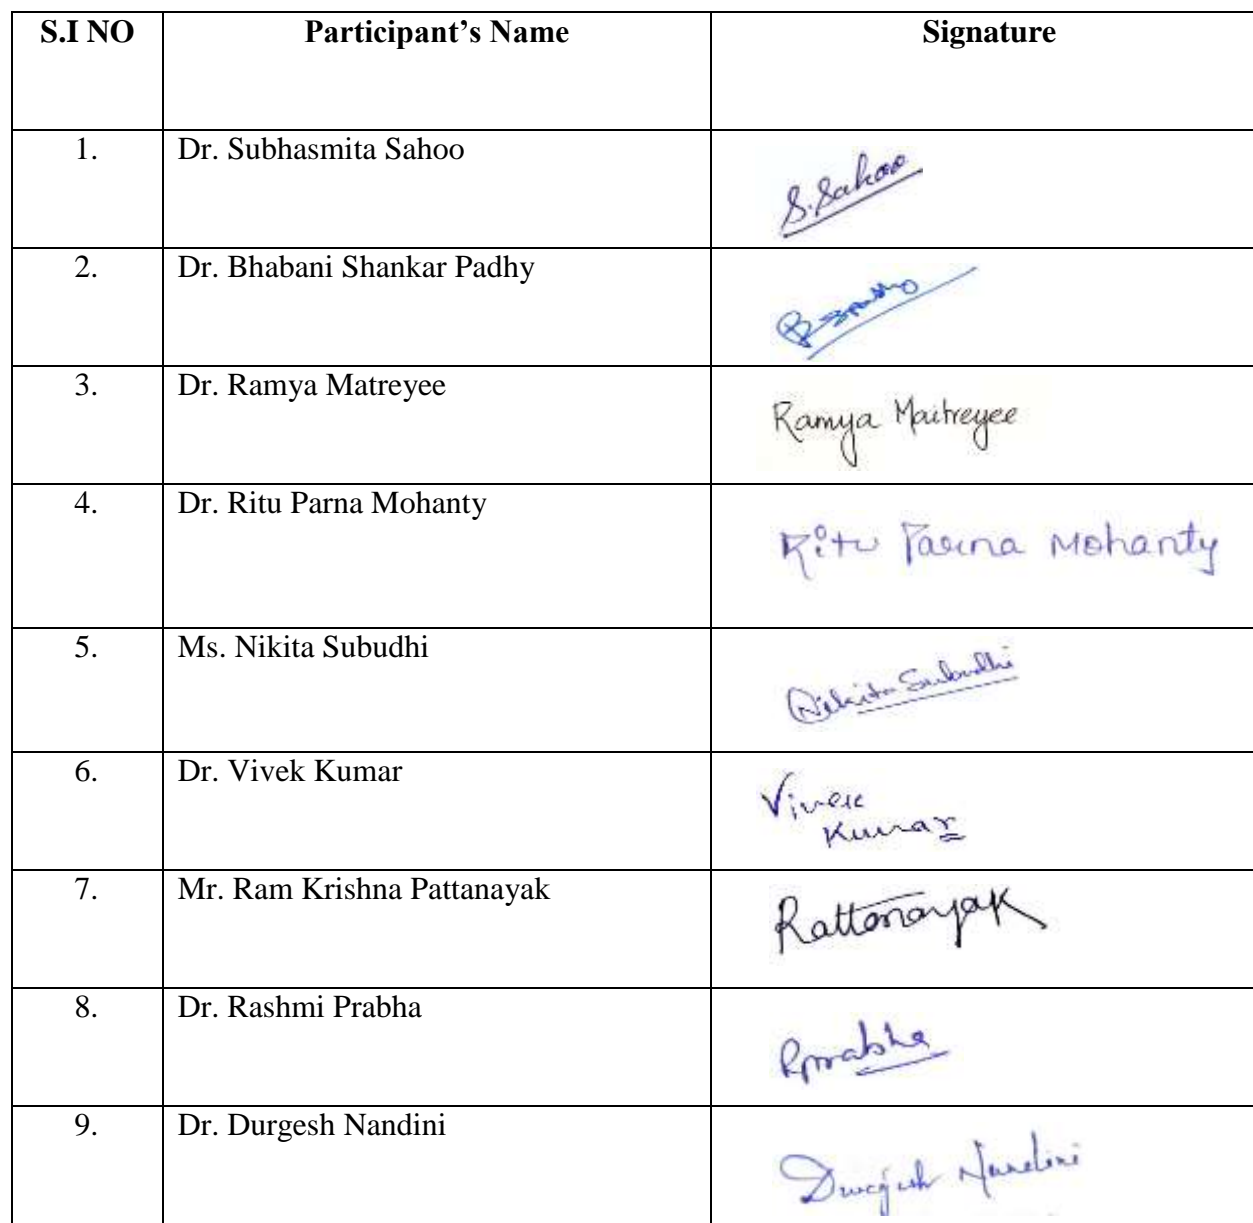 S.I NO Participant’s Name Signature
1. Dr. Subhasmita Sahoo S. Sahoo
2. Dr. Bhabani Shankar Padhy
3. Dr. Ramya Matreyee Ramya Maitreyee
4. Dr. Ritu Parna Mohanty Ritu Parna Mohanty
5. Ms. Nikita Subudhi Nikita Subudhi
6. Dr. Vivek Kumar Vivek
Kumar
7. Mr. Ram Krishna Pattanayak Rattanayak
8. Dr. Rashmi Prabha Rprabha
9. Dr. Durgesh Nandini Durgesh Nandini